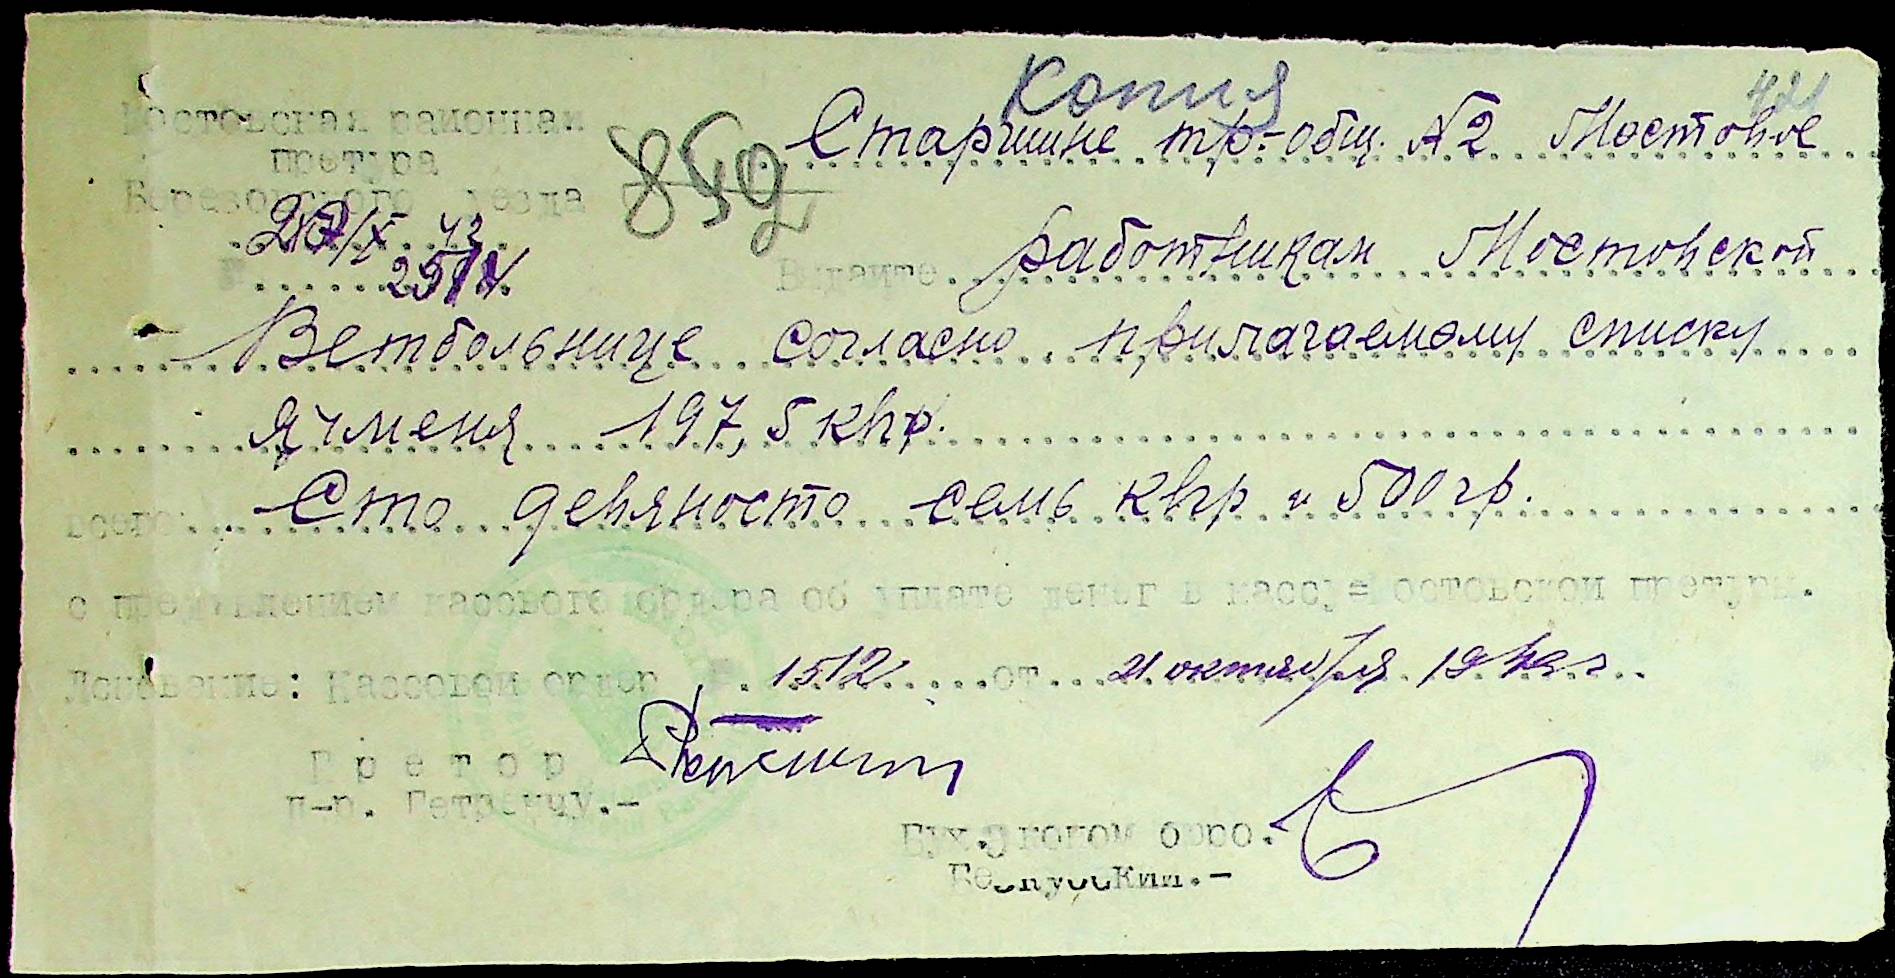 Копия
Мостовская районная
претура
Березовского уезда
Старшине тр-общ. №2 Мостовое
859
Выдайте работникам Мостовской
Ветбольнице согласно прилагаемому списку
ячменя 197,5 квгр.
всего: Сто девяносто семь квгр и 500 гр.
с предъявлением кассового ордера об уплате денег в кассу Мостовской претуры.
Основание: Кассовой ордер № 1512 от 21 октября 194
Претор
Бух.Эконом